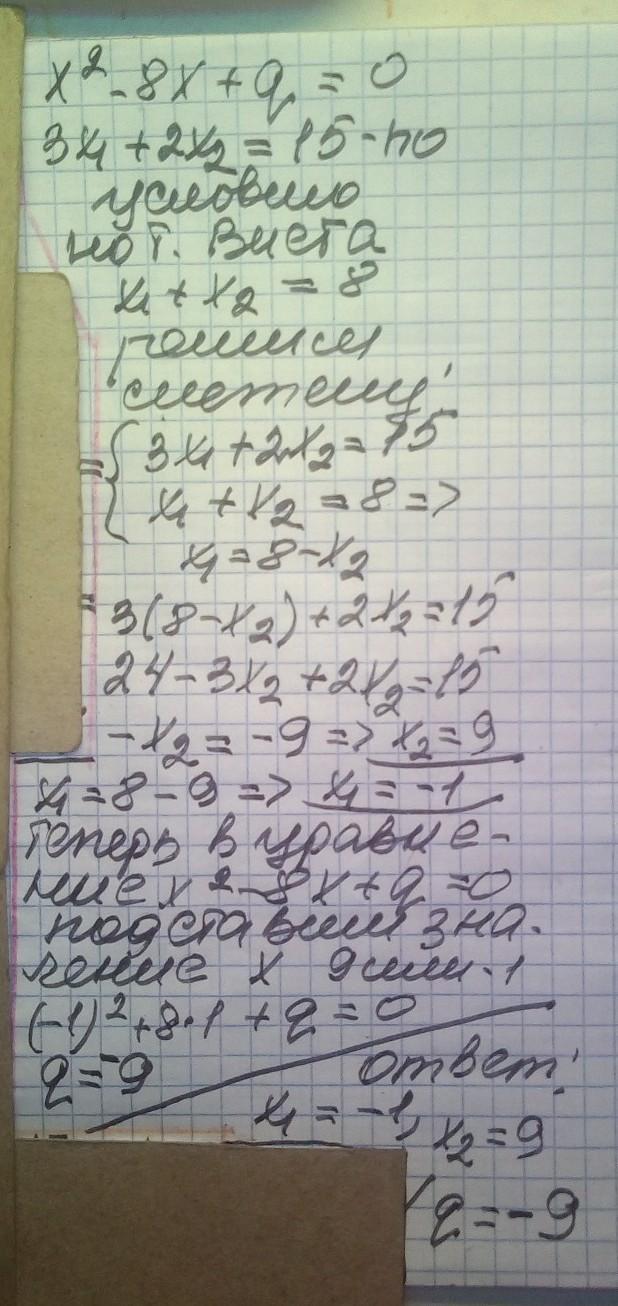 x² - 8x + q = 0
3x₁ + 2x₂ = 15 - по
условию
по т. Виета
x₁ + x₂ = 8
решим
систему
{ 3x₁ + 2x₂ = 15
x₁ + x₂ = 8 =>
x₁ = 8 - x₂
3(8 - x₂) + 2x₂ = 15
24 - 3x₂ + 2x₂ = 15
-x₂ = -9 => x₂ = 9
x₁ = 8 - 9 => x₁ = -1
теперь в уравне-
ние x² - 8x + q = 0
подставим зна-
чение x 9 или -1
(-1)² + 8·1 + q = 0
q = -9
ответ:
x₁ = -1, x₂ = 9
q = -9